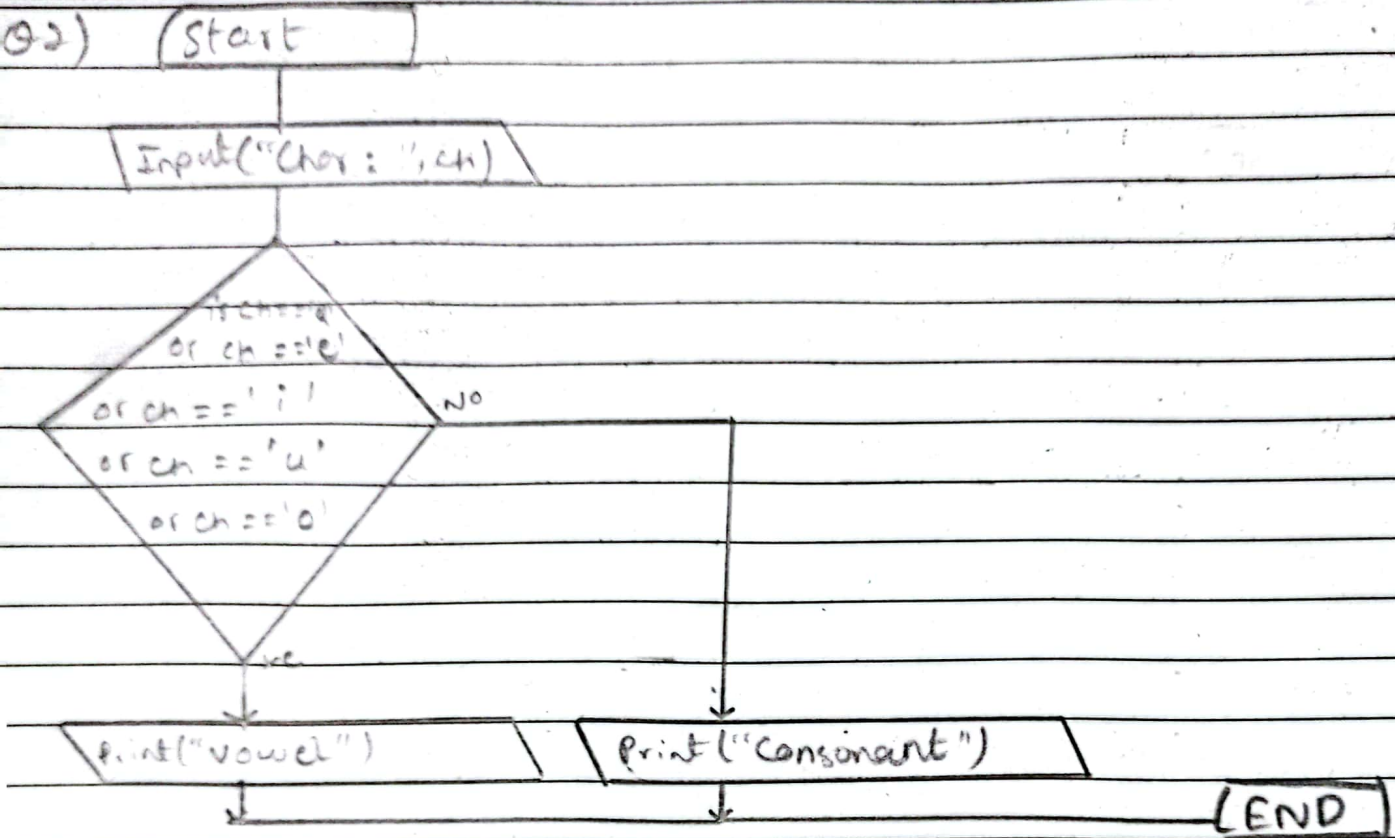 Q2) Start
Input("Char: ", ch)
is ch==a
or ch =='e'
or ch == 'i'
No
or ch =='u'
or ch =='o'
Print("vowel")
Print("Consonant")
END